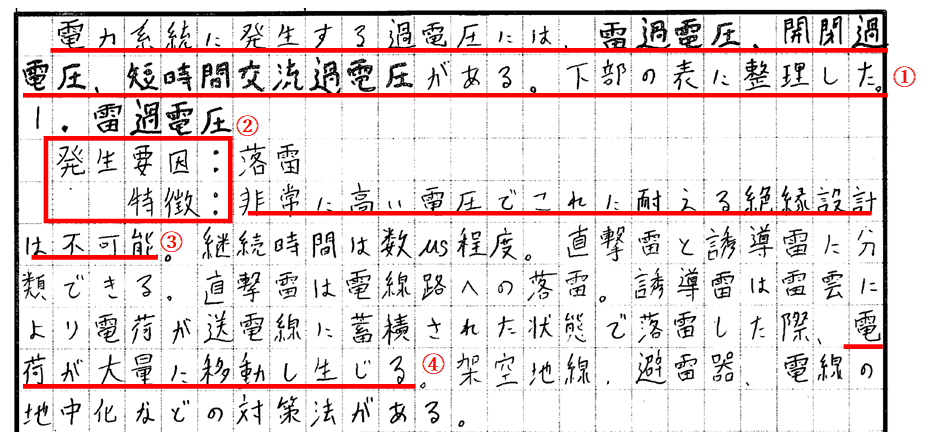 電力系統に発生する過電圧には、雷過電圧、開閉過
電圧、短時間交流過電圧がある。下部の表に整理した。①
1.雷過電圧②
発生要因:落雷
特徴:非常に高い電圧でこれに耐える絶縁設計
は不可能③。継続時間は数μs程度。直撃雷と誘導雷に分
類できる。直撃雷は電線路への落雷。誘導雷は雷雲に
より電荷が送電線に蓄積された状態で落雷した際、電
荷が大量に移動し生じる。④架空地線、避雷器、電線の
地中化などの対策法がある。